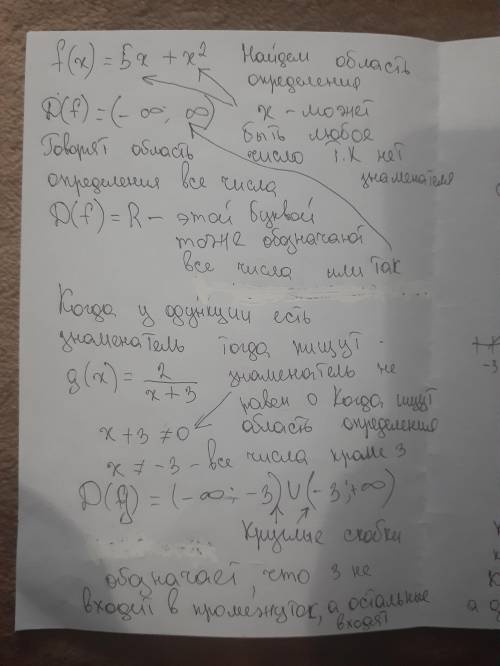 f(x) = 5x + x² Найдем область
определения
D(f) = (-∞; ∞) x - может
быть любое
Говорят область число т.к нет
определения все числа знаменателя
D(f) = R - этой буквой
тоже обозначают
все числа или так
Когда у функции есть
знаменатель тогда пишут -
g(x) = 2/(x+3) знаменатель не
равен 0 Когда ищут
x + 3 ≠ 0 область определения
x ≠ -3 - все числа кроме 3
D(g) = (-∞; -3) U (-3; +∞)
Круглые скобки
обозначает, что 3 не
входит в промежуток, а остальные
входят
-3
а